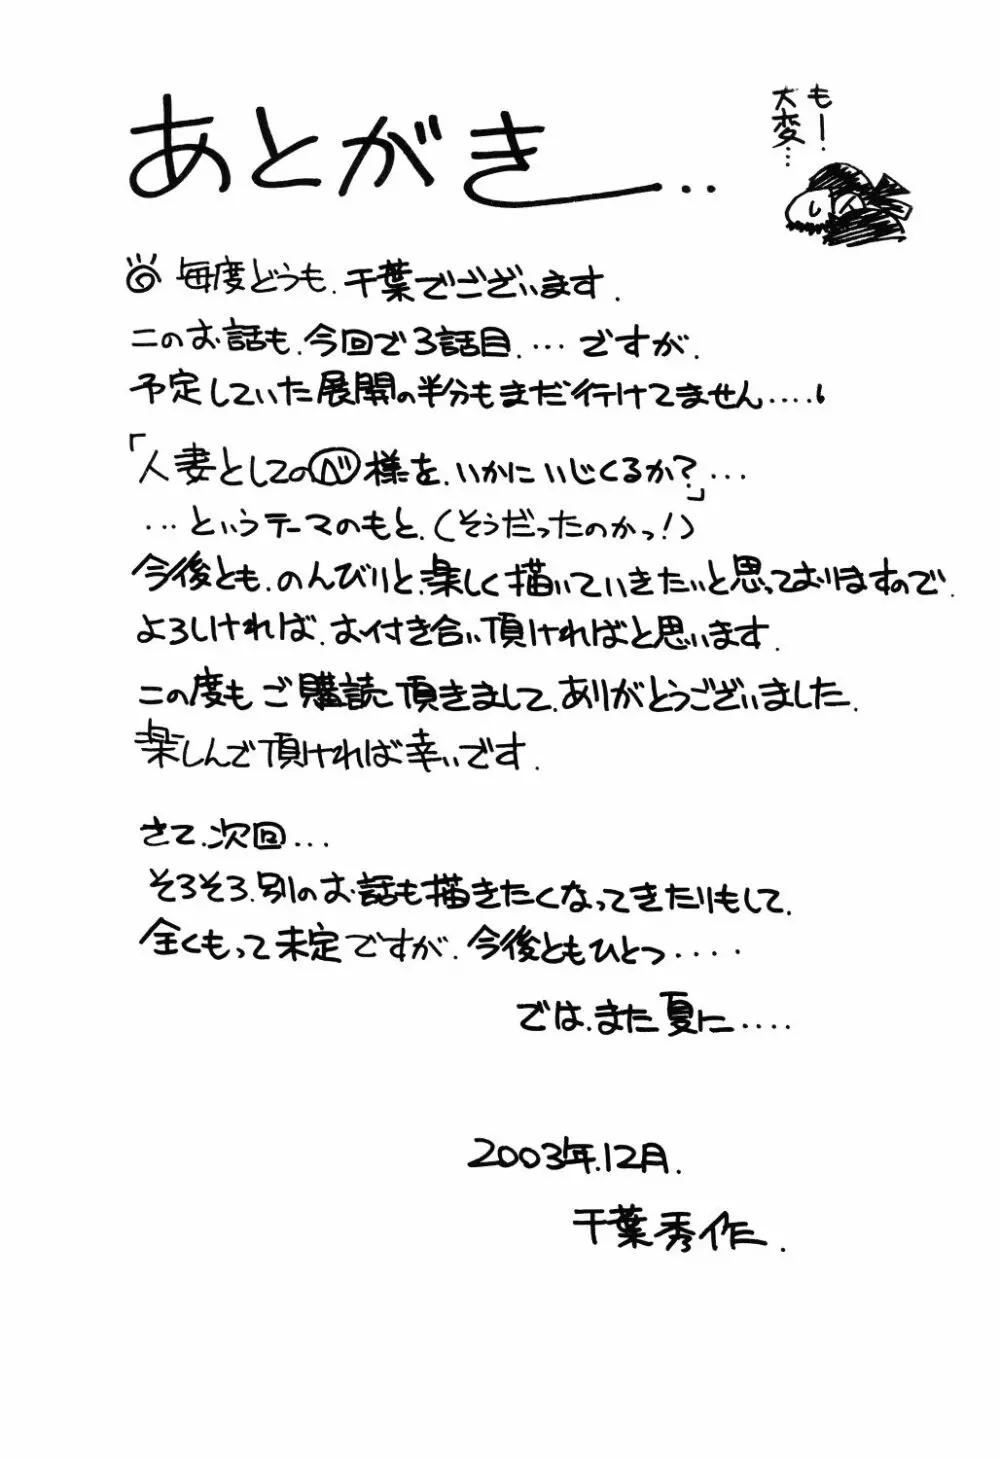 あとがき..
もー
大変…
毎度どうも.千葉でございます.
このお話も.今回で3話目.…ですが.
予定していた展開の半分もまだ行けてません....
「人妻としてのベ様を.いかにいじくるか?」...
...というテーマのもと.(そうだったのかっ!)
今後とも.のんびりと.楽しく描いていきたいと思っておりますので.
よろしければ.お付き合い頂ければと思います.
この度もご購読頂きまして.ありがとうございました.
楽しんで頂ければ幸いです.
さて.次回...
そろそろ.別のお話も描きたくなってきたりもして.
全くもって未定ですが.今後ともひとつ....
では.また夏に....
2003年.12月.
千葉秀作.